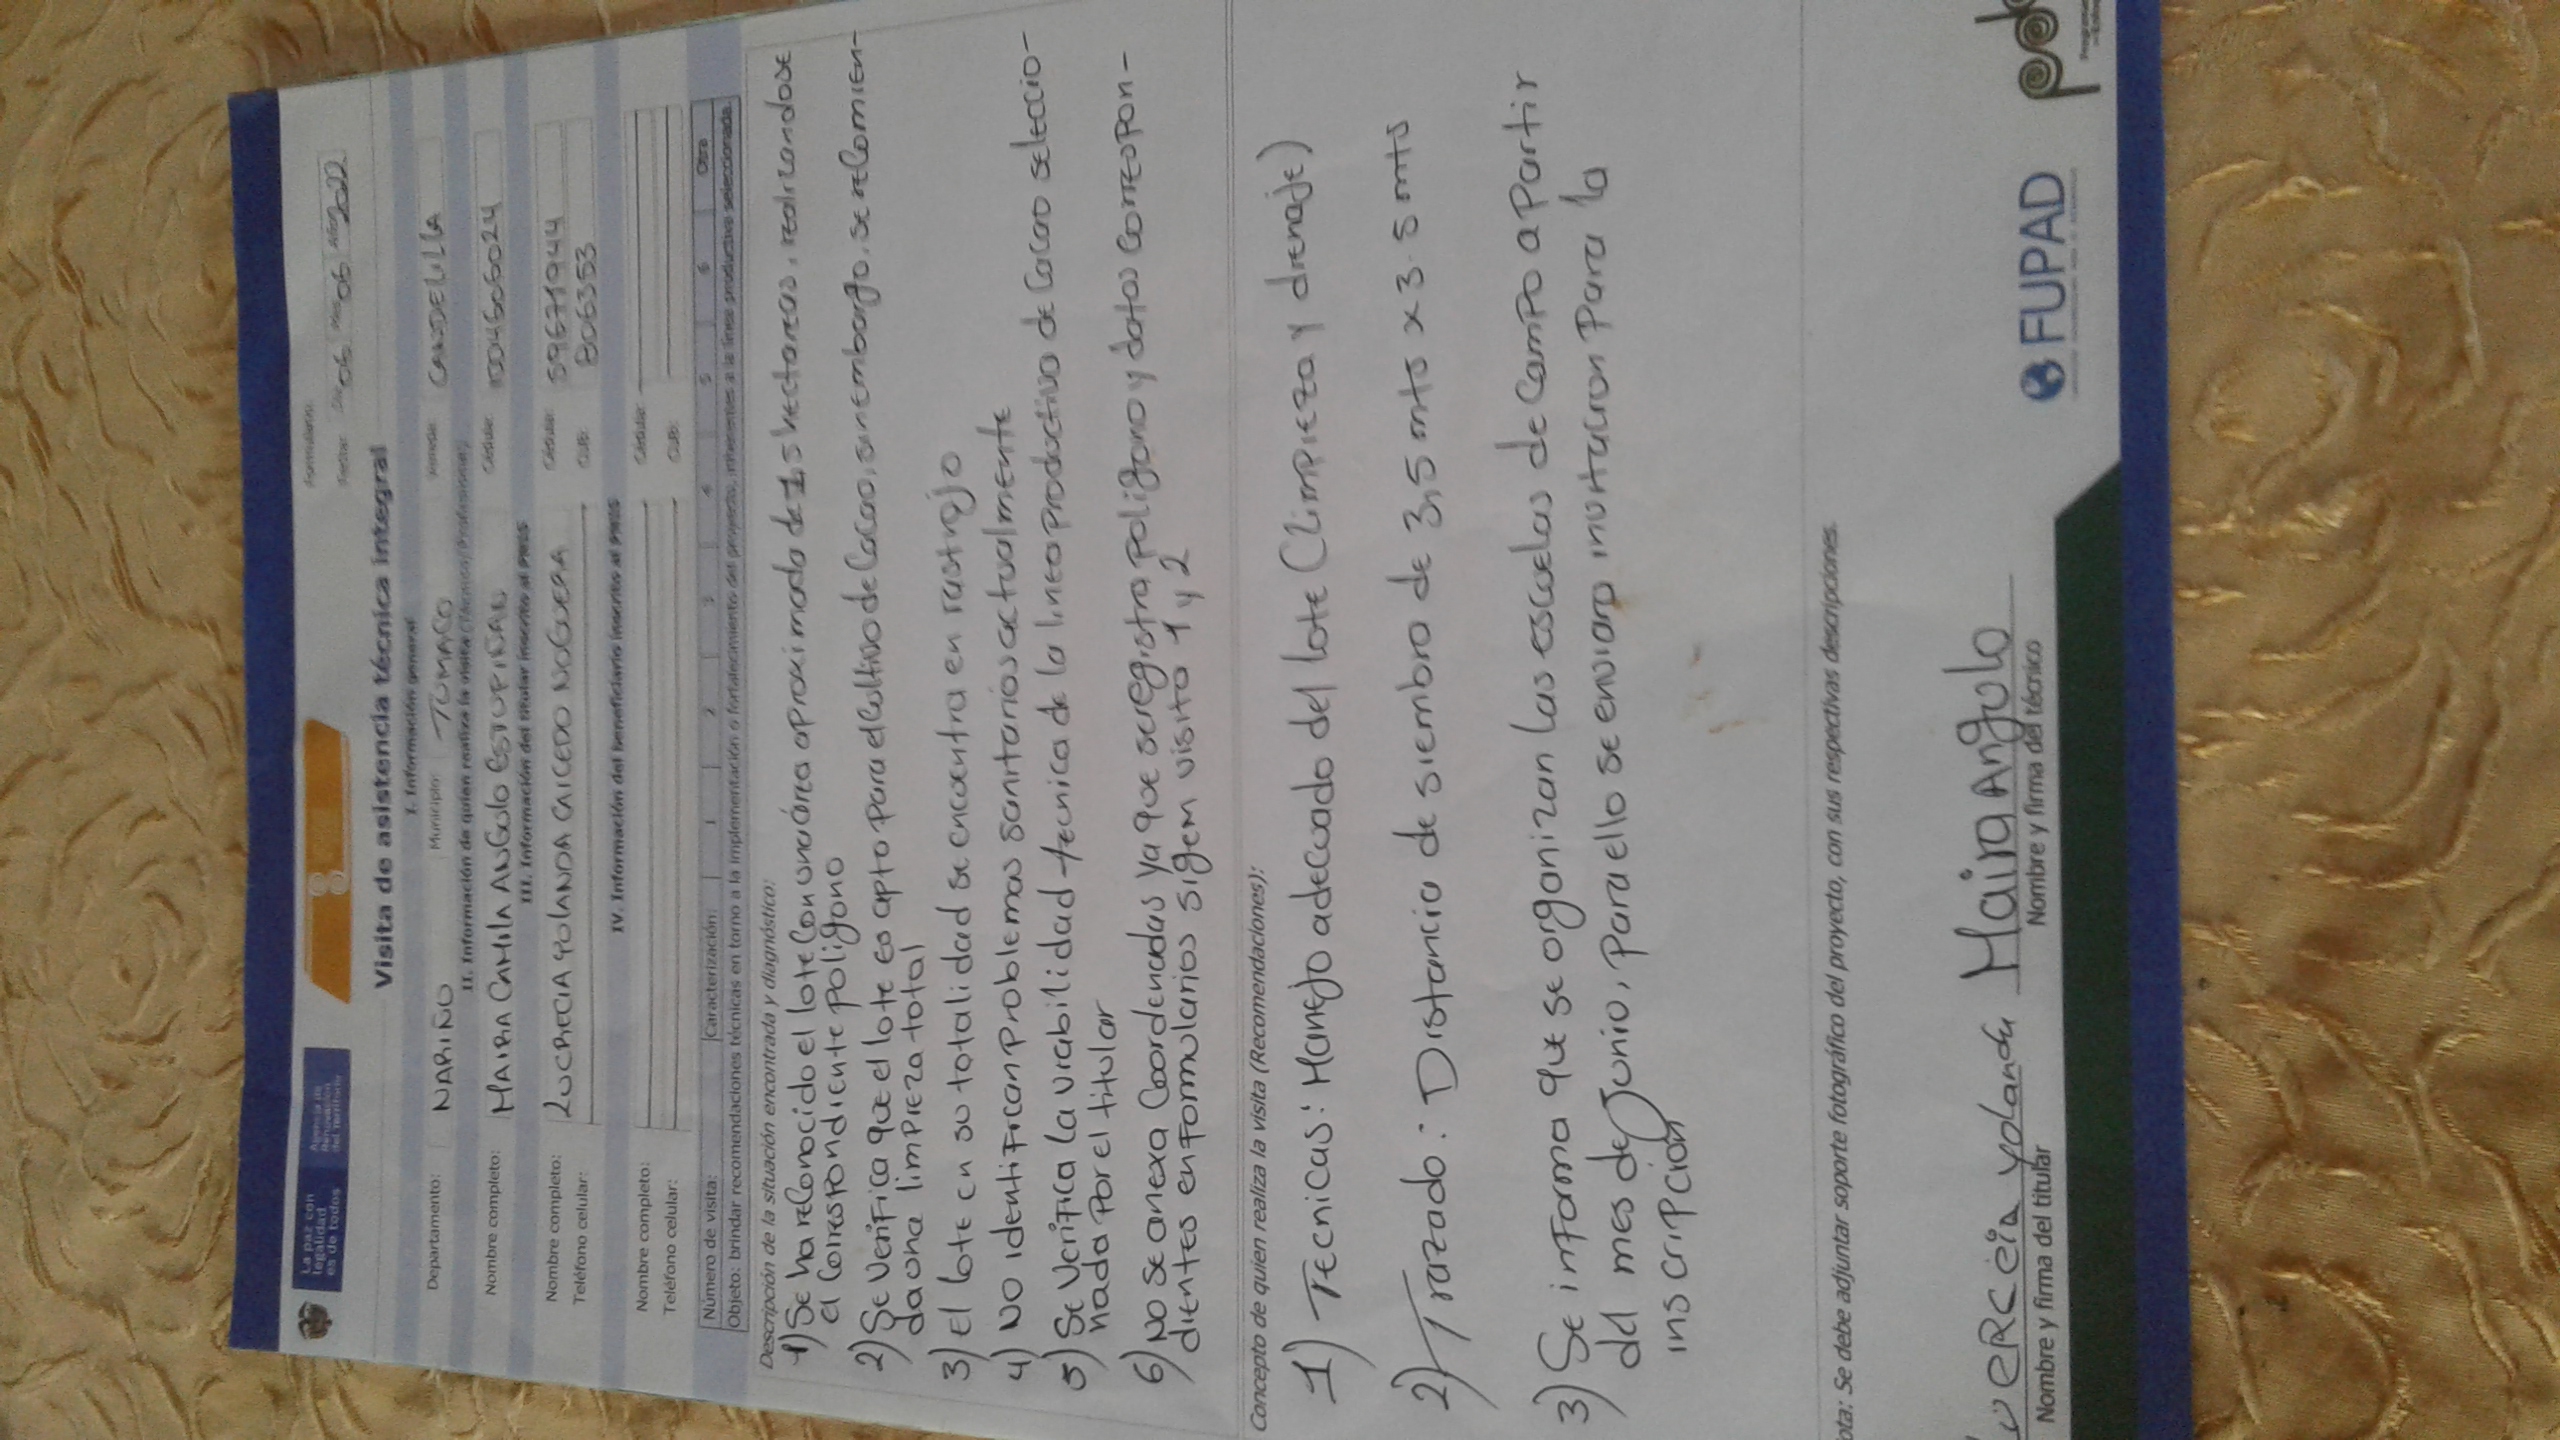 La paz con
legalidad
es de todos
Agencia de
Renovación
del Territorio
Formulario:
Fecha: Día 06 Mes 06 Año 2022
Visita de asistencia técnica integral
I. Información general
Departamento: NARIÑO Municipio: TUMACO Vereda: CANDELILLA
II. Información de quien realiza la visita (Técnico/Profesional)
Nombre completo: MAIRA CAMILA ANGULO ESTUPIÑAN Cédula: 1004605024
III. Información del titular inscrito al PNIS
Nombre completo: LUCRECIA YOLANDA CAICEDO NOGUERA Cédula: 59671944
Teléfono celular: CUB: 806353
IV. Información del beneficiario inscrito al PNIS
Nombre completo: Cédula:
Teléfono celular: CUB:
Número de visita: Caracterización: 1 2 3 4 5 6 Otra
Objeto: brindar recomendaciones técnicas en torno a la implementación o fortalecimiento del proyecto, inherentes a la línea productiva seleccionada.
Descripción de la situación encontrada y diagnóstico:
1) Se ha reconocido el lote con un área aproximada de 1,5 hectareas, realizandose
el correspondiente poligono
2) Se verifica que el lote es apto para el cultivo de Cacao, sin embargo, se recomien-
da una limpieza total
3) El lote en su totalidad se encuentra en rastrojo
4) No identifican problemas sanitarios actualmente
5) Se verifica la viabilidad tecnica de la linea productiva de Cacao seleccio-
nada por el titular
6) No se anexa Coordenadas ya que se registra poligono y datos correspon-
dientes en formularios sigem visita 1 y 2
Concepto de quien realiza la visita (Recomendaciones):
1) Tecnicas: Manejo adecuado del lote (Limpieza y drenaje)
2) Trazado: Distancia de siembra de 3,5 mts x 3.5 mts
3) Se informa que se organizan las escuelas de Campo a partir
del mes de Junio, para ello se enviara invitacion para la
inscripción
ota: Se debe adjuntar soporte fotográfico del proyecto, con sus respectivas descripciones.
LUERCEIA yolanda Maira Angulo
Nombre y firma del titular Nombre y firma del técnico
FUPAD